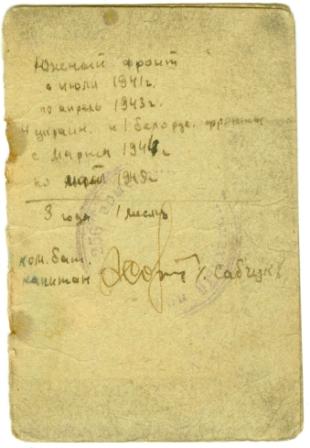 Южный фронт
с июля 1941г.
по апрель 1943г.
4 украин. и 1 Белорус. фронты
с марта 1944г
по май 1945г
3 года 1 месяц
ком. бат.
капитан